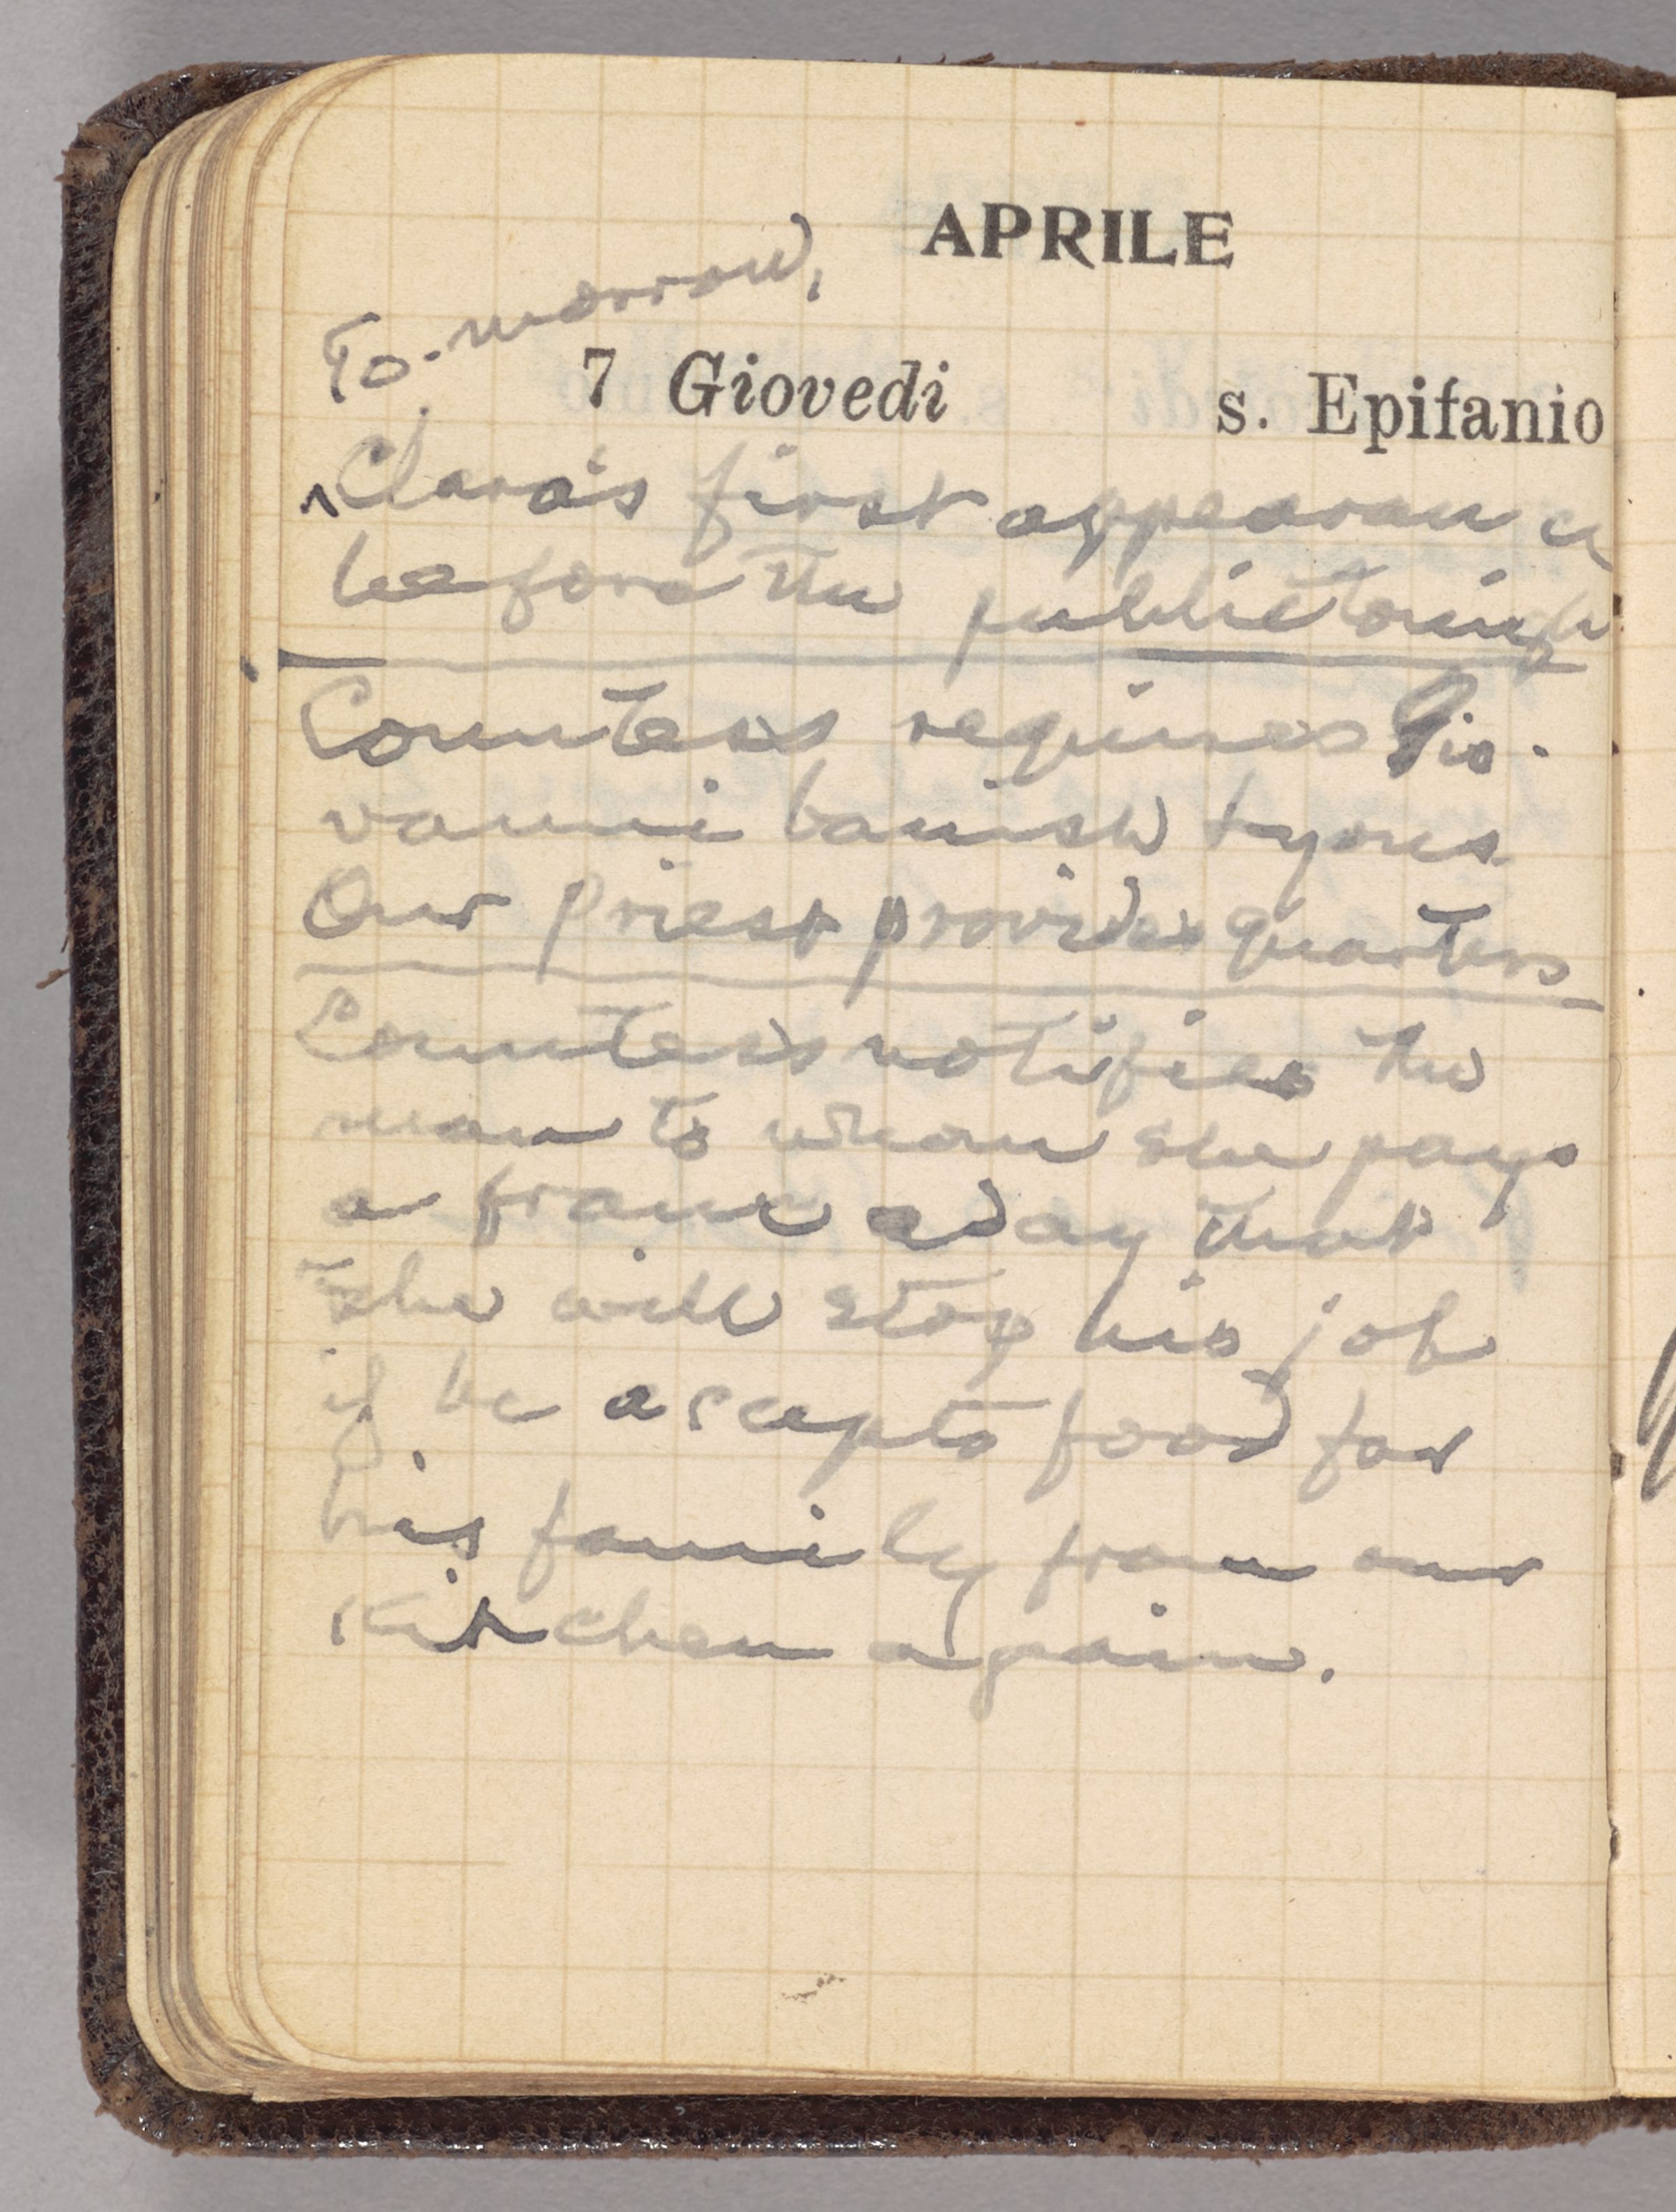 APRILE
To-morrow,
7 Giovedi s. Epifanio
^Clara's first appearance
before the public tonigh
Countess requires Gio-
vanni banish
Our priest provides quarters
Countess notifies the
man to whom she pays
a franc a day that
she will stop his job
if he accepts food for
his family from our
kitchen again.